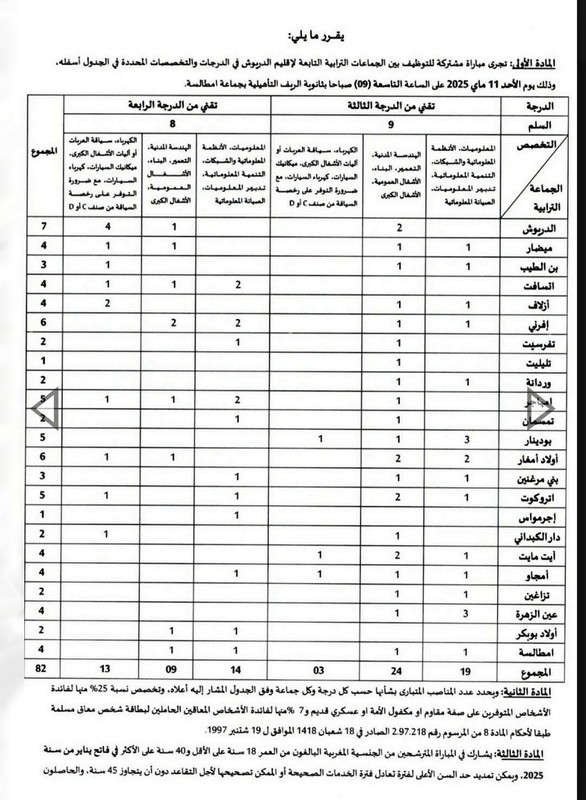 يقرر ما يلي:
المادة الأولى: تجرى مباراة مشتركة للتوظيف بين الجماعات الترابية التابعة لإقليم الدريوش في الدرجات والتخصصات المحددة في الجدول أسفله،
وذلك يوم الأحد 11 ماي 2025 على الساعة التاسعة (09) صباحا بثانوية الريف التأهيلية بجماعة امطالسة.
الدرجة تقني من الدرجة الثالثة تقني من الدرجة الرابعة المجموع
السلم 9 8
التخصص
الجماعة
الترابية
المعلوميات، الأنظمة
المعلوماتية والشبكات،
التنمية المعلوماتية،
تدبير المعلوميات،
الصيانة المعلوماتية،
الهندسة المدنية،
التعمير، البناء،
الأشغال العمومية،
الأشغال الكبرى
الكهرباء، سياقة العربات أو
آليات الأشغال الكبرى، ميكانيك
السيارات، كهرباء السيارات، مع
ضرورة التوفر على رخصة
السياقة من صنف C أو D
المعلوميات، الأنظمة
المعلوماتية والشبكات،
التنمية المعلوماتية،
تدبير المعلوميات،
الصيانة المعلوماتية
الهندسة المدنية،
التعمير، البناء،
الأشغال
العمومية،
الأشغال الكبرى
الكهرباء، سياقة العربات
أو آليات الأشغال الكبرى،
ميكانيك السيارات، كهرباء
السيارات، مع ضرورة
التوفر على رخصة
السياقة من صنف C أو D
الدريوش 2 1 4 7
ميضار 1 1 1 1 4
بن الطيب 1 1 1 3
اتسافت 2 1 1 4
أزلاف 1 1 2 4
إفرني 1 1 2 2 6
تفرسيت 1 1 2
تليليت 1 1
وردانة 1 1 2
1 2 1 1 5
تمسمان 1 1 2
بودينار 3 1 1 5
أولاد أمغار 2 2 1 1 6
بني مرغنين 1 1 1 3
اتروكوت 1 2 1 1 5
إجرمواس 1 1
دار الكبداني 1 1 2
آيت مايت 1 2 1 4
أمجاو 1 1 1 1 4
تزاغين 1 1 2
عين الزهرة 3 1 4
أولاد بوبكر 1 1 2
امطالسة 1 1 1 1 4
المجموع 19 24 03 14 09 13 82
المادة الثانية: ويحدد عدد المناصب المتبارى بشأنها حسب كل درجة وكل جماعة وفق الجدول المشار إليه أعلاه، وتخصص نسبة 25% منها لفائدة
الأشخاص المتوفرين على صفة مقاوم او مكفول الأمة أو عسكري قديم و7 %منها لفائدة الأشخاص المعاقين الحاملين لبطاقة شخص معاق مسلمة
طبقا لأحكام المادة 8 من المرسوم رقم 2.97.218 الصادر في 18 شعبان 1418 الموافق ل 19 شتنبر 1997.
المادة الثالثة: يشارك في المباراة المترشحين من الجنسية المغربية البالغون من العمر 18 سنة على الأقل و40 سنة على الأكثر في فاتح يناير من سنة
2025. ويمكن تمديد حد السن الأعلى لفترة تعادل فترة الخدمات الصحيحة أو الممكن تصحيحها لأجل التقاعد دون أن يتجاوز 45 سنة، والحاصلون